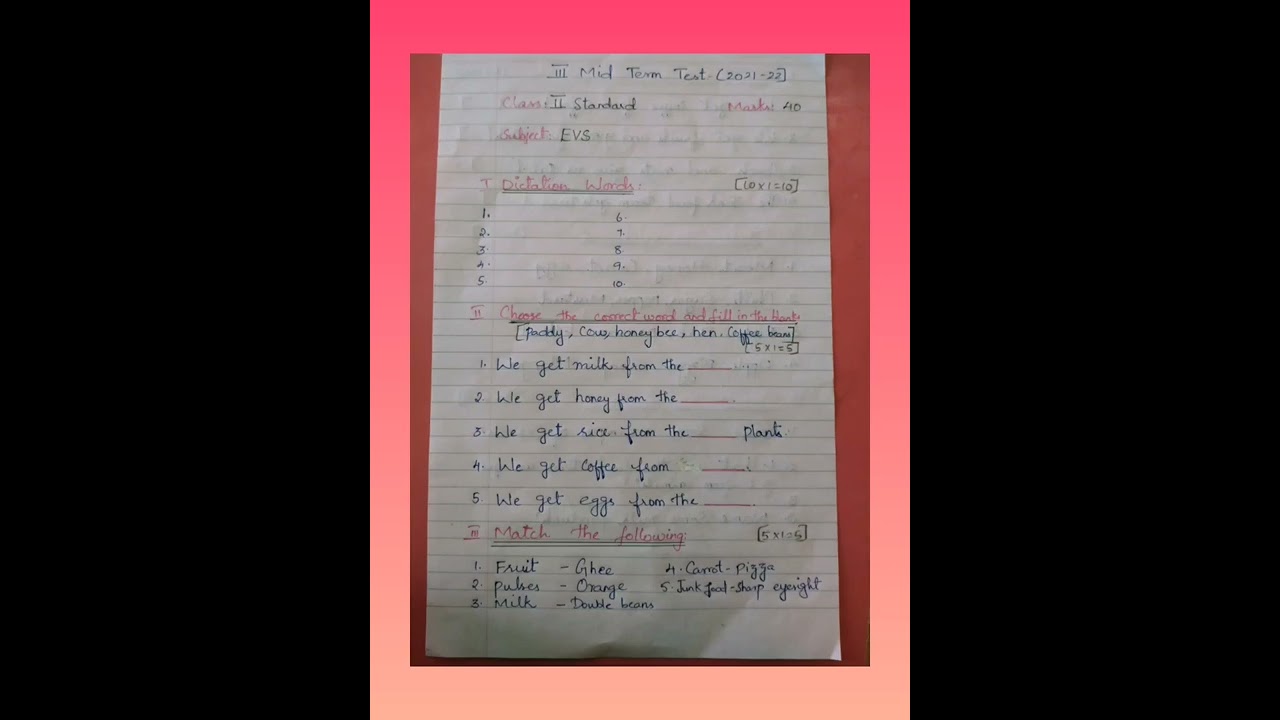 III Mid Term Test-(2021-22]
Class: II Standard Marks: 40
Subject: EVS
I Dictation Words: [10x1=10]
1. 6.
2. 7.
3. 8.
4. 9.
5. 10.
II Choose the correct word and fill in the blanks
[paddy, cow, honey bee, hen, Coffee beans]
[5x1=5]
1. We get milk from the ______
2. We get honey from the ______.
3. We get rice from the ______ plants.
4. We get coffee from ______.
5. We get eggs from the ______.
III Match the following: [5x1=5]
1. Fruit - Ghee 4. Carrot - Pizza
2. pulses - Orange 5. Junk food - Sharp eyesight
3. Milk - Double beans